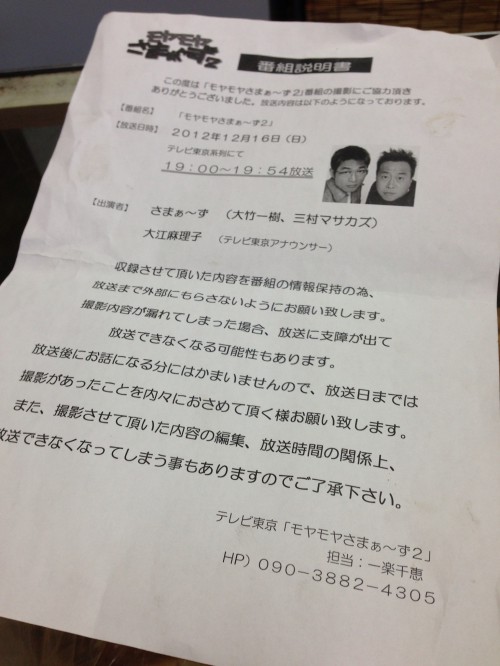 モヤモヤ
さまぁ~ず2
番組説明書
この度は「モヤモヤさまぁ~ず2」番組の撮影にご協力頂き
ありがとうございました。放送内容は以下のようになっております。
【番組名】 「モヤモヤさまぁ~ず2」
【放送日時】 2012年12月16日(日)
テレビ東京系列にて
19:00~19:54放送
【出演者】 さまぁ~ず (大竹一樹、三村マサカズ)
大江麻理子 (テレビ東京アナウンサー)
収録させて頂いた内容を番組の情報保持の為、
放送まで外部にもらさないようにお願い致します。
撮影内容が漏れてしまった場合、放送に支障が出て
放送できなくなる可能性もあります。
放送後にお話になる分にはかまいませんので、放送日までは
撮影があったことを内々におさめて頂く様お願い致します。
また、撮影させて頂いた内容の編集、放送時間の関係上、
放送できなくなってしまう事もありますのでご了承下さい。
テレビ東京「モヤモヤさまぁ~ず2」
担当:一楽千恵
HP)090-3882-4305